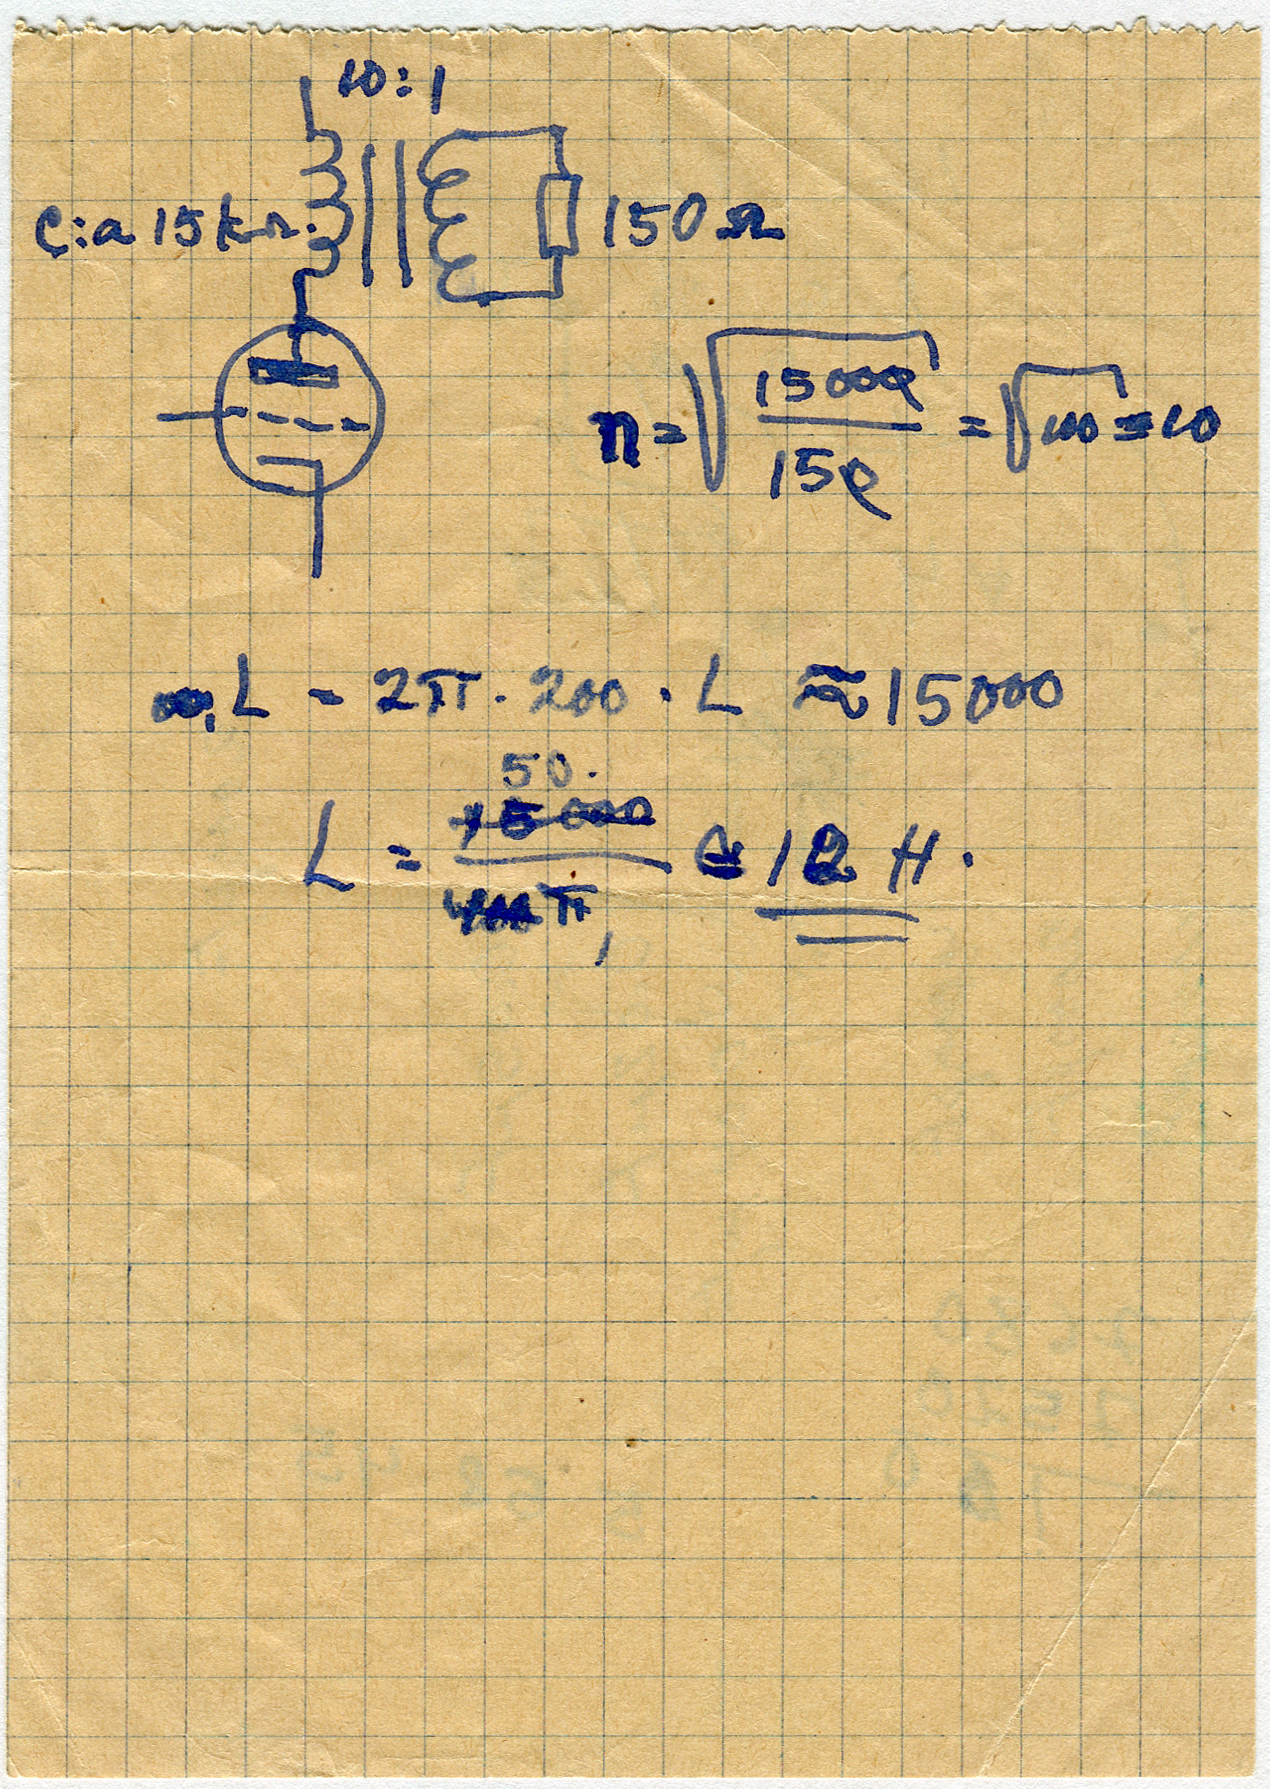 10:1
c:a 15 kΩ.
150 Ω
n = √15000/150 = √100 = 10
L = 2π · 200 · L ≈ 15000
50.
L = 15 000/400 π ≅ 12 H.